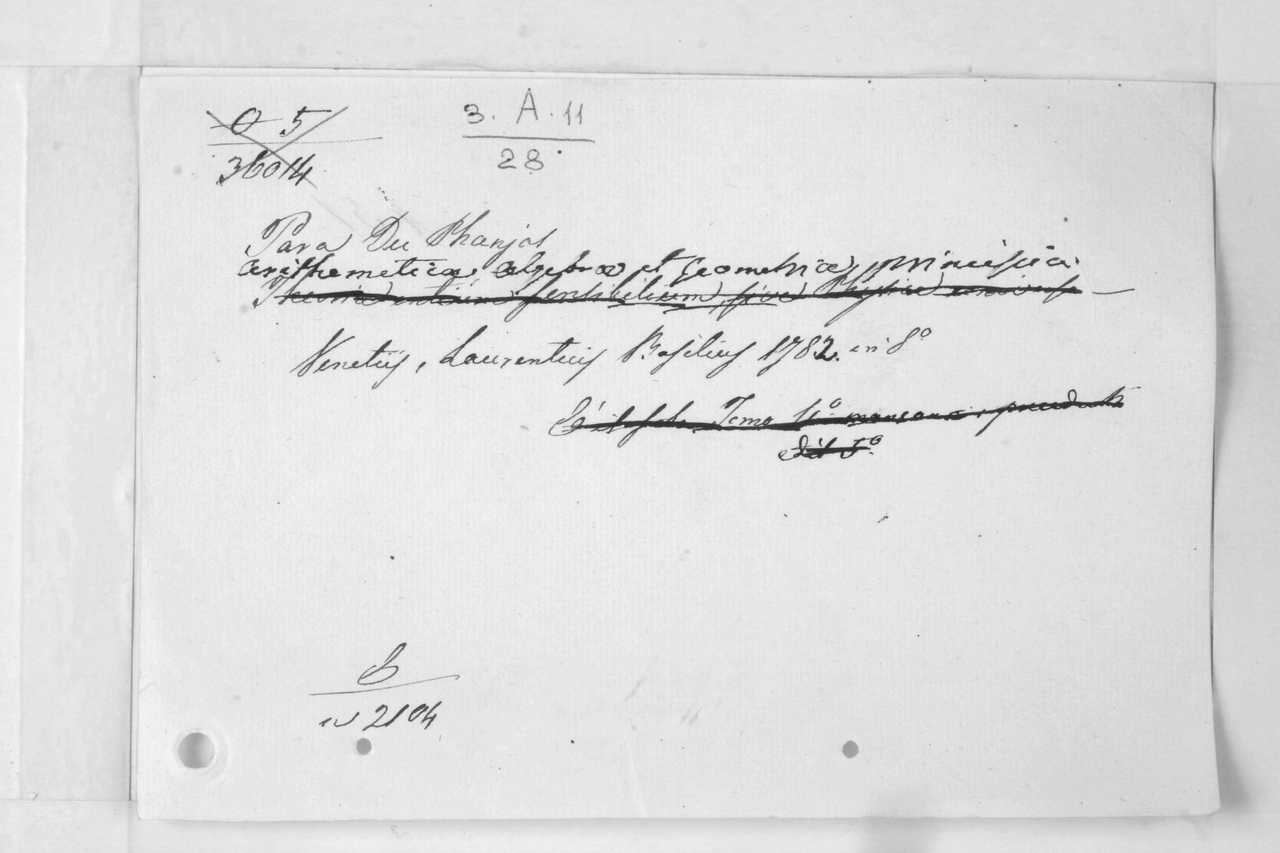 O 5
36014
3. A. 11
28.
Para Du Phanjas
arithmeticæ algebræ et Geometriæ principia.
Theoria entium sensibilium, sive Physica universa
Venetiis, Laurentius Basilius 1782. in 8°
Tomo
Edit
B
2104